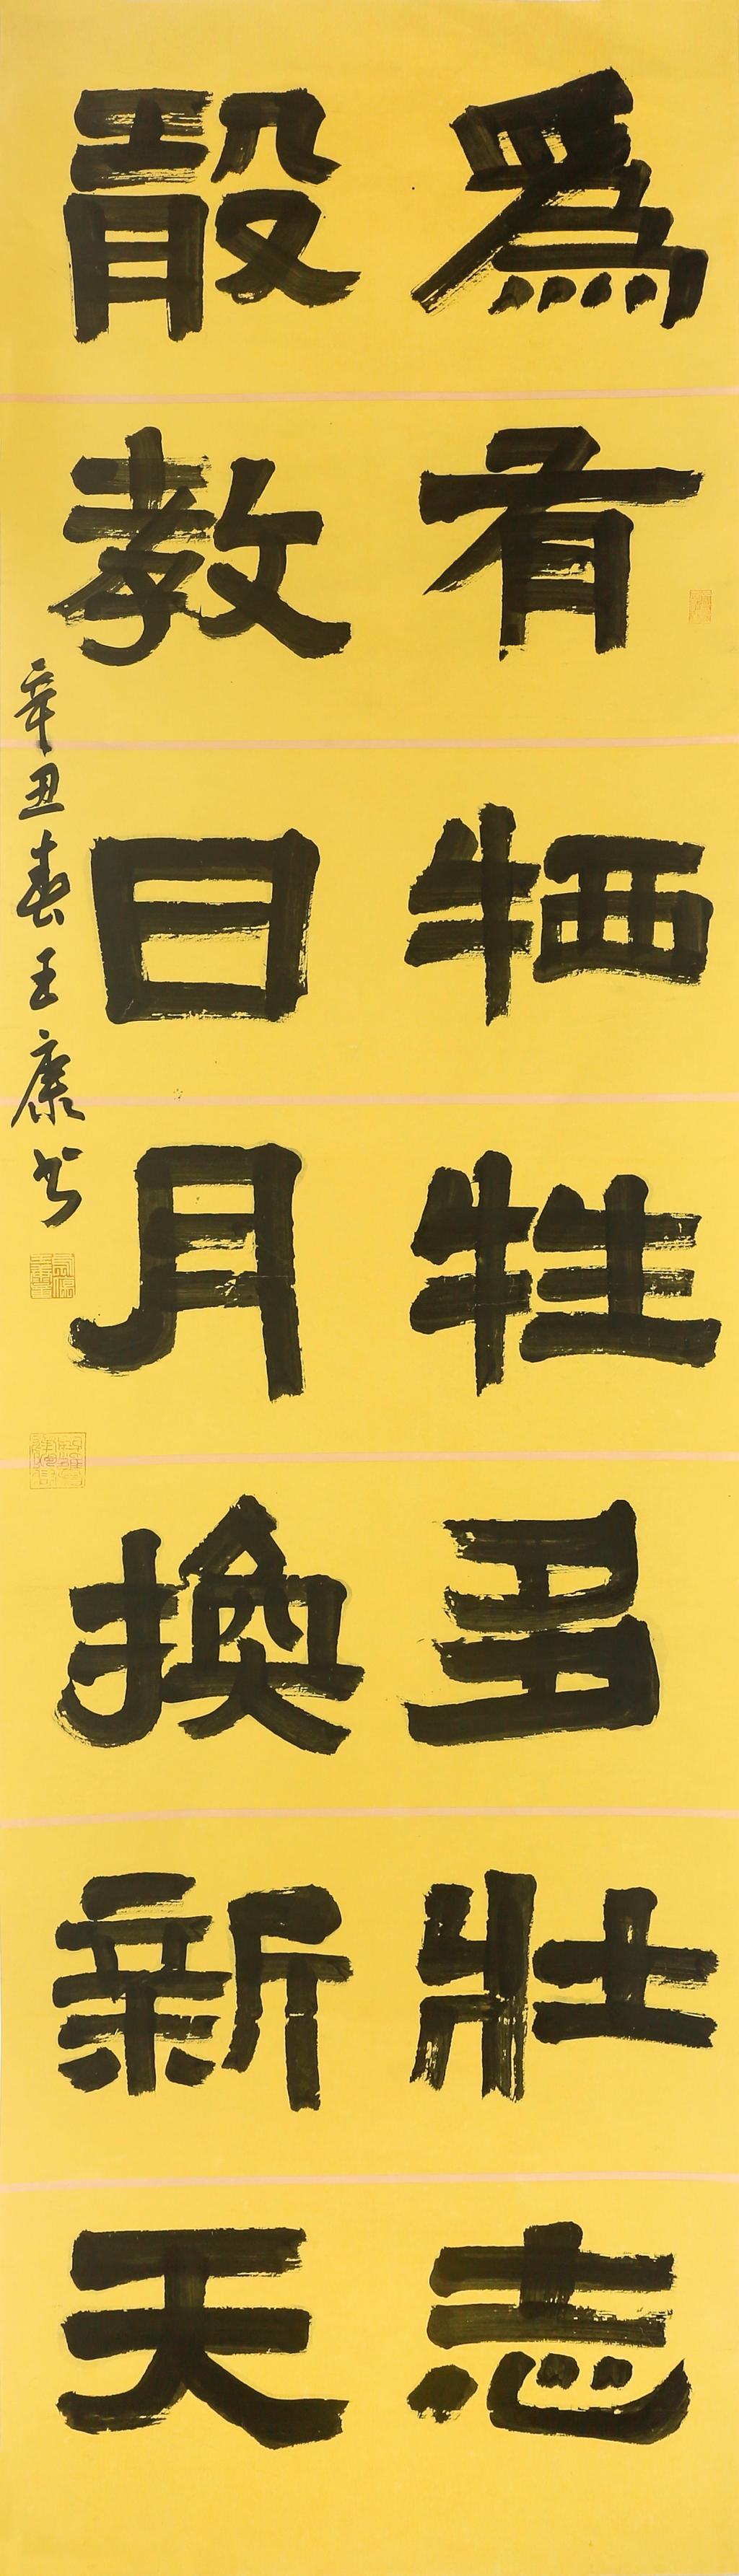 爲有牺牲多壯志
敢教日月換新天
辛丑春王康书